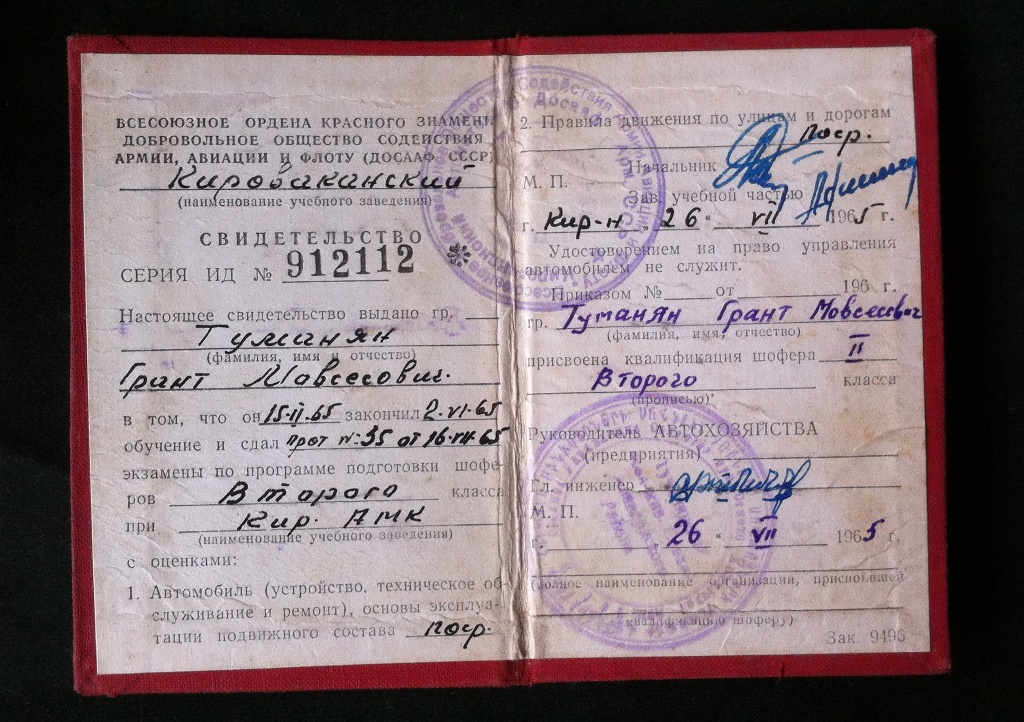 ВСЕСОЮЗНОЕ ОРДЕНА КРАСНОГО ЗНАМЕНИ
ДОБРОВОЛЬНОЕ ОБЩЕСТВО СОДЕЙСТВИЯ
АРМИИ, АВИАЦИИ И ФЛОТУ (ДОСААФ СССР)
Кироваканский
(наименование учебного заведения)
СВИДЕТЕЛЬСТВО
СЕРИЯ ИД № 912112
Настоящее свидетельство выдано гр.
Туманян
(фамилия, имя и отчество)
Грант Мовсесович.
в том, что он 15·II·65 закончил 2·VI·65
обучение и сдал прот №35 от 16·VII·65
экзамены по программе подготовки шофе-
ров Второго класса
при Кир. АМК
(наименование учебного заведения)
с оценками:
1. Автомобиль (устройство, техническое об-
служивание и ремонт), основы эксплуа-
тации подвижного состава поср.
2. Правила движения по улицам и дорогам
поср.
Начальник
М. П.
Зав. учебной частью
г. Кир-н „26" VII 1965 г.
Удостоверением на право управления
автомобилем не служит.
Приказом № от 196 г.
гр. Туманян Грант Мовсесович
(фамилия, имя, отчество)
присвоена квалификация шофера II
Второго класса
(прописью)
Руководитель АВТОХОЗЯЙСТВА
(предприятия)
Гл. инженер
М. П.
г. 26 " VII 1965 г.
(полное наименование организации, присвоившей
квалификацию шоферу)
Зак. 9496